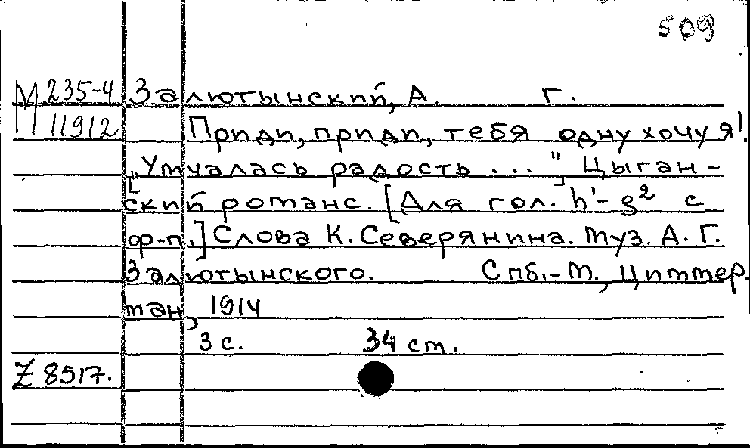 509
М 235-4 Залютынский, А. Г.
11912 Приди, приди, тебя одну хочу я!
["Умчалась радость ..."] Цыган-
ский романс. [Для гол. h¹-g² с
ф-п.] Слова К. Северянина. Муз. А. Г.
Залютынского. Спб.-М., Циммер-
ман, 1914
3 с. 34 ст.
Z 8517.